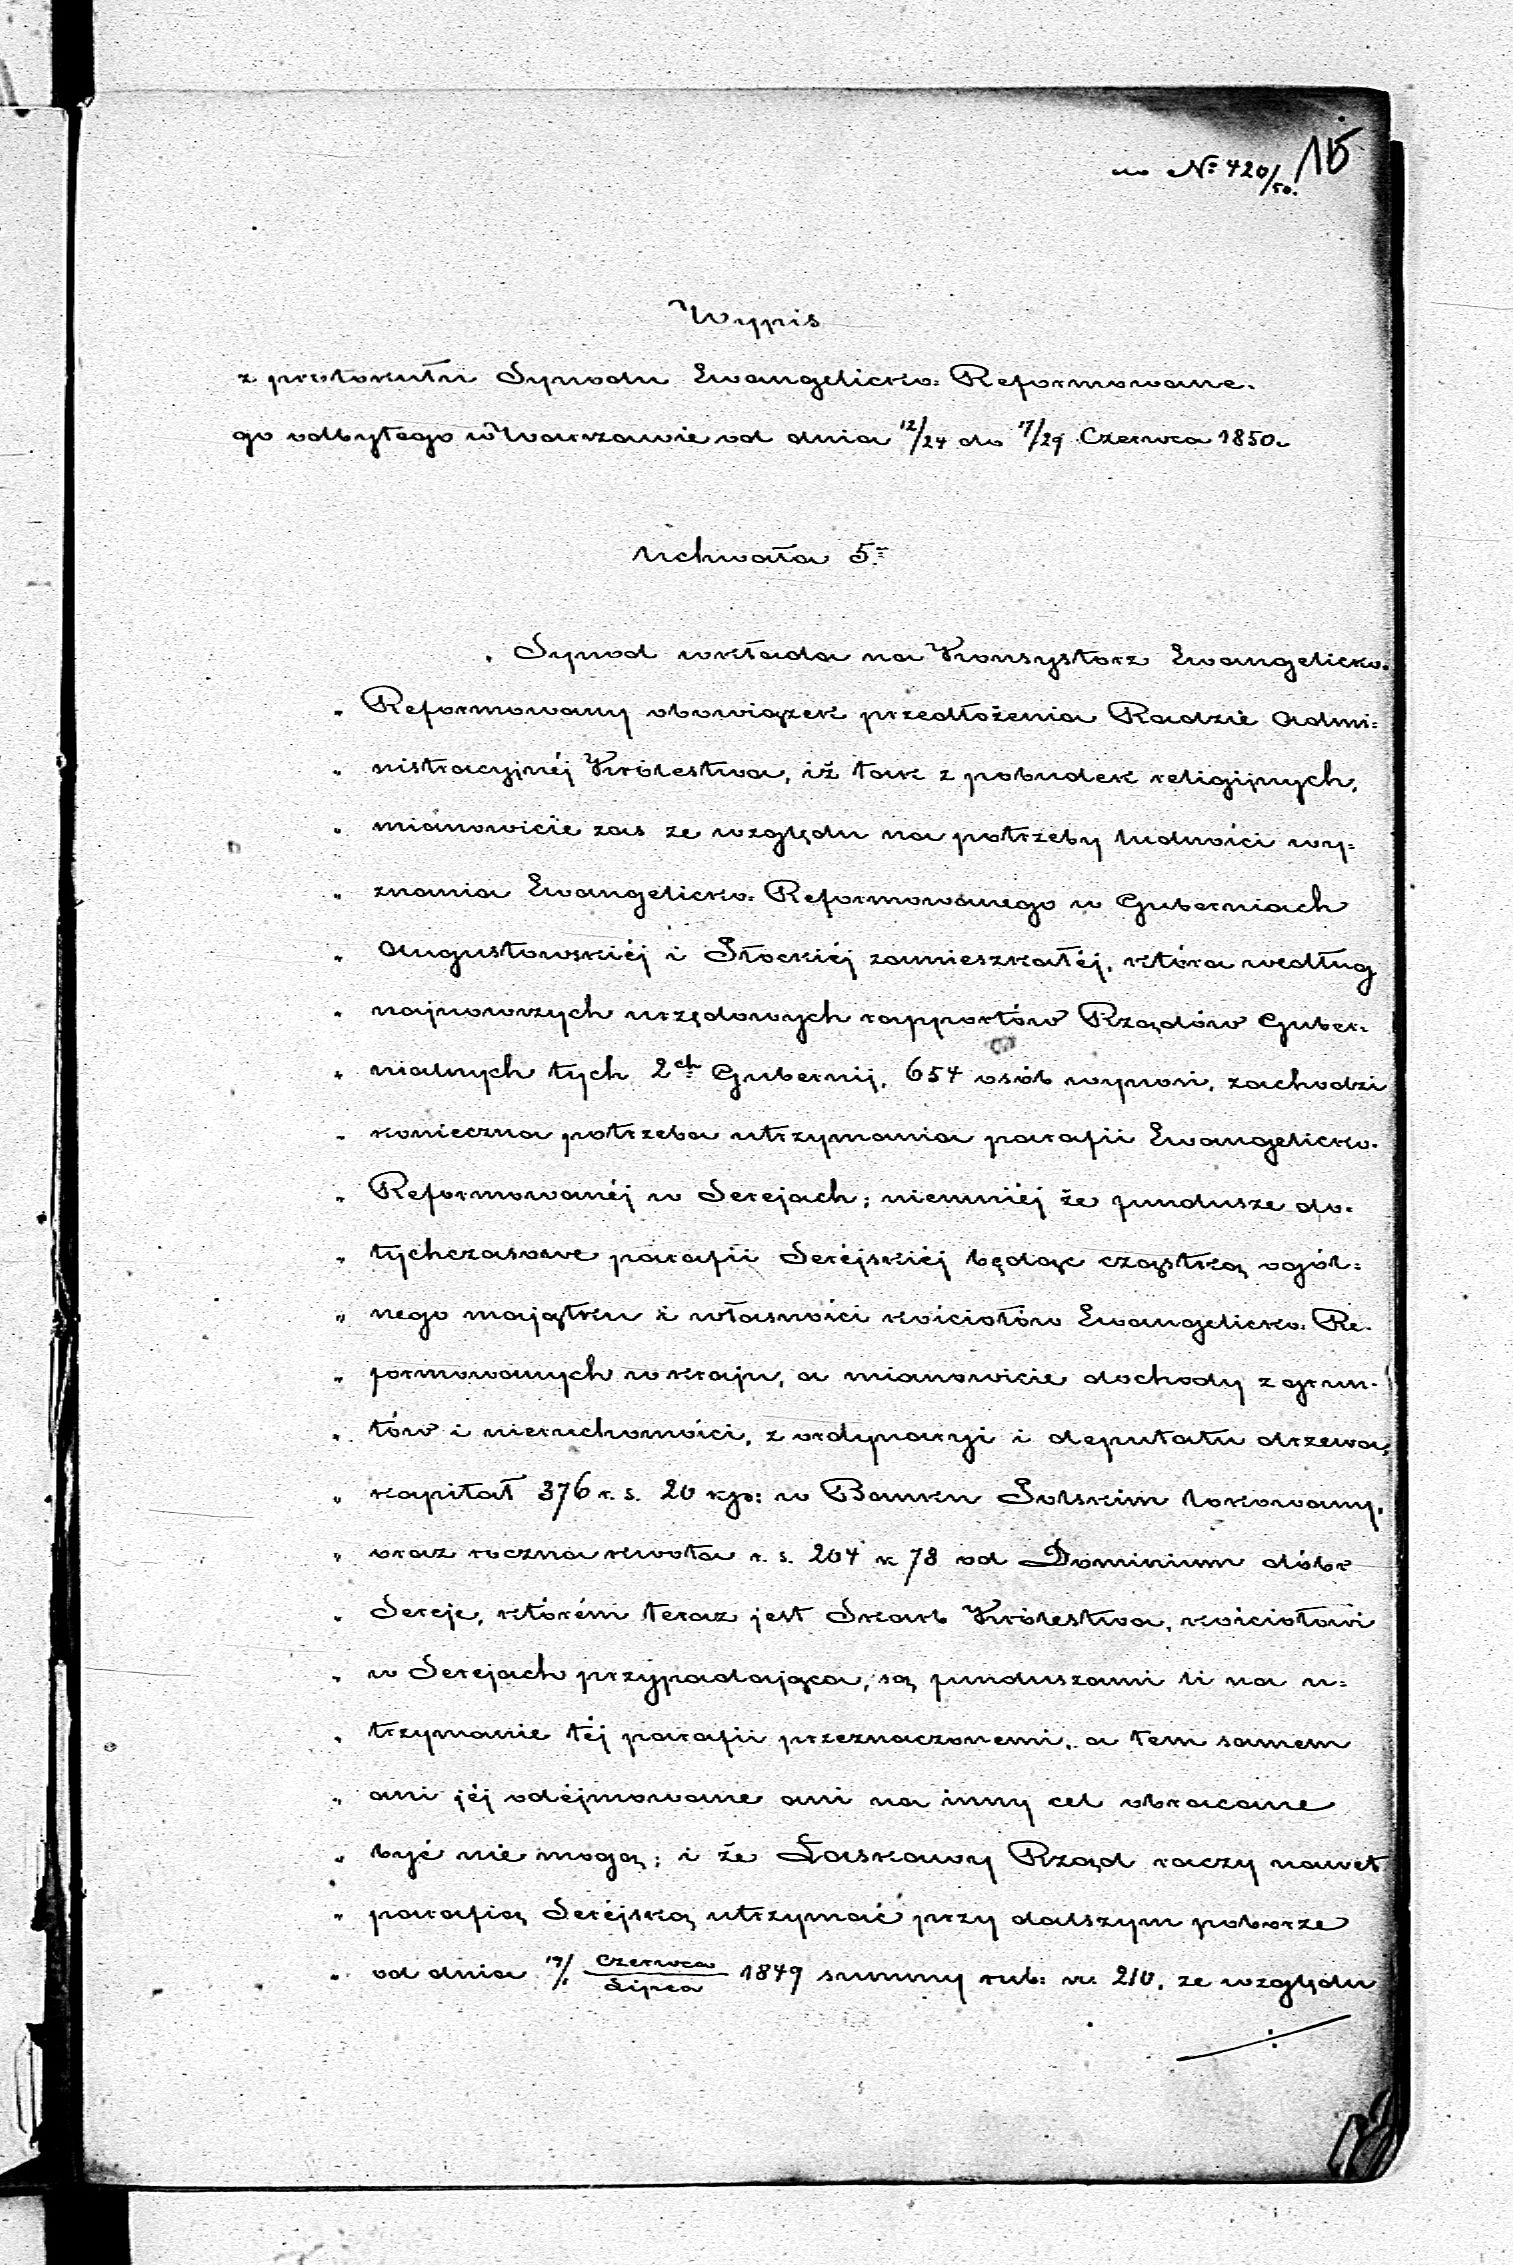 ad № 420/50. 15
Wypis
z protokułu Synodu Ewangelicko-Reformowane-
go odbytego w Warszawie od dnia 12/24 do 17/29 Czerwca 1850.
Uchwała 5.
„ Synod wkłada na Konsystorz Ewangelicko-
„ Reformowany obowiązek przedłożenia Radzie Admi=
„ nistracyjnéj Królestwa, iż tak z pobudek religijnych,
„ mianowicie zas ze względu na potrzeby ludności wy=
„ znania Ewangelicko-Reformowanego w Guberniach
„ Augustowskiéj i Płockiéj zamieszkałéj, która według
„ najnowszych urzędowych rapportów Rządów Guber-
„ nialnych tych 2ch Gubernij, 654 osób wynosi, zachodzi
„ konieczna potrzeba utrzymania parafii Ewangelicko-
„ Reformowanéj w Serejach; niemniéj że fundusze do-
„ tychczasowe parafii Seréjskiéj będąc cząstką ogól=
„ nego majątku i własności kościołów Ewangelicko-Re-
„ formowanych w kraju, a mianowicie dochody z grun-
„ tów i nieruchomości, z ordynaryi i deputatu drzewa,
„ kapitał 376 r. s. 20 kp: w Banku Polskim lokowany,
„ oraz roczna kwota r. s. 204 k 78 od Dominium dóbr
„ Sereje, którém teraz jest Skarb Królestwa, kościołowi
„ w Serejach przypadająca, są funduszami li na u=
„ trzymanie téj parafii przeznaczonemi, a tem samem
„ ani jéj odéjmowane ani na inny cel obracane
„ być nie mogą; i że Łaskawy Rząd raczy nawet
„ parafią Seréjską utrzymać przy dalszym poborze
„ od dnia 19/1 Czerwca/Lipca 1849 summy rub: sr: 210, ze względu